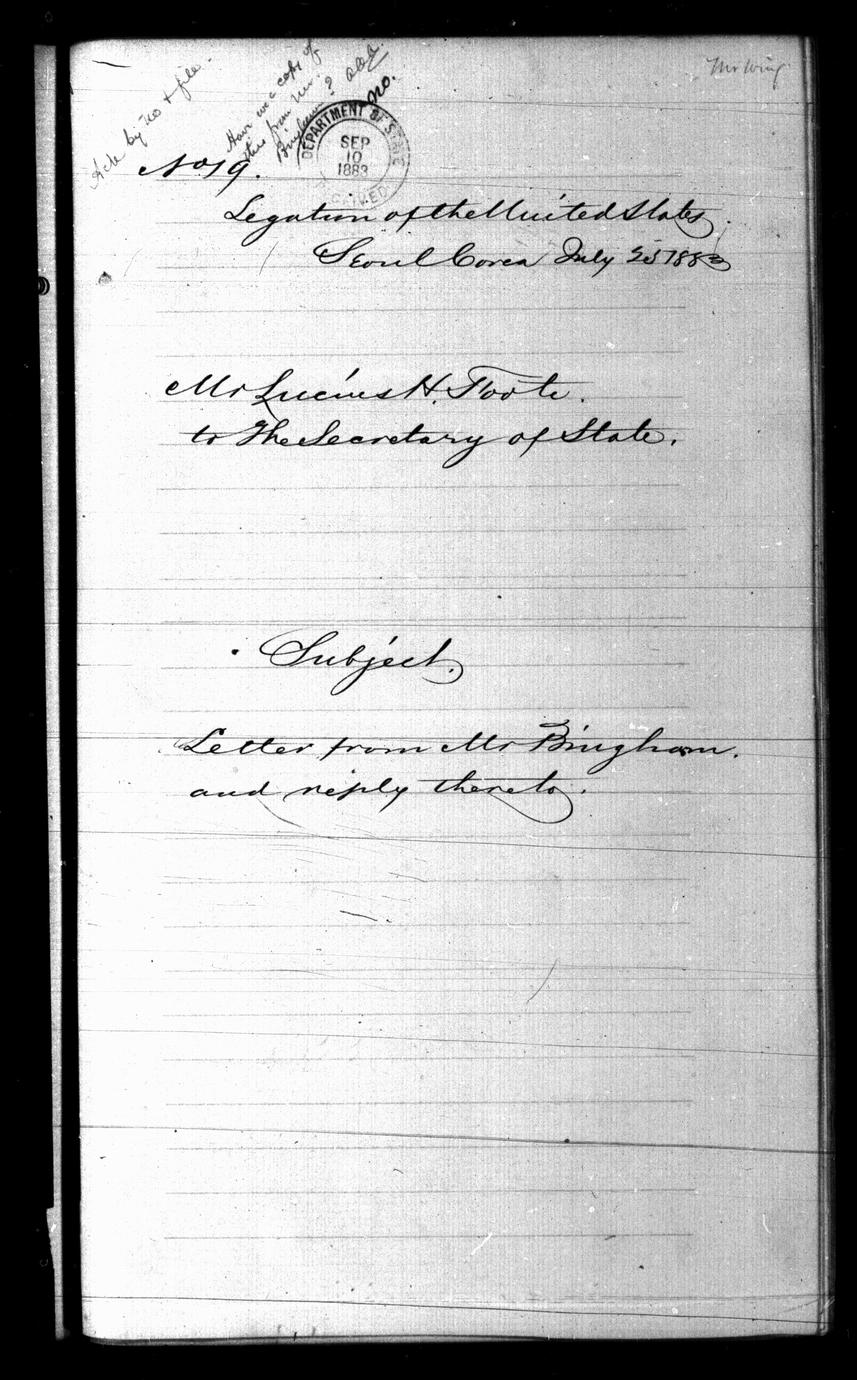 Mr Wing
Ack by no & file.
Have we a copy of
this from Mr.
Bingham?
no.
DEPARTMENT OF STATE
SEP
10
1883
RECEIVED
No 19.
Legation of the United States.
Seoul Corea July 1883
Mr Lucius H. Foote.
to The Secretary of State.
Subject.
Letter from Mr Bingham.
and reply thereto.